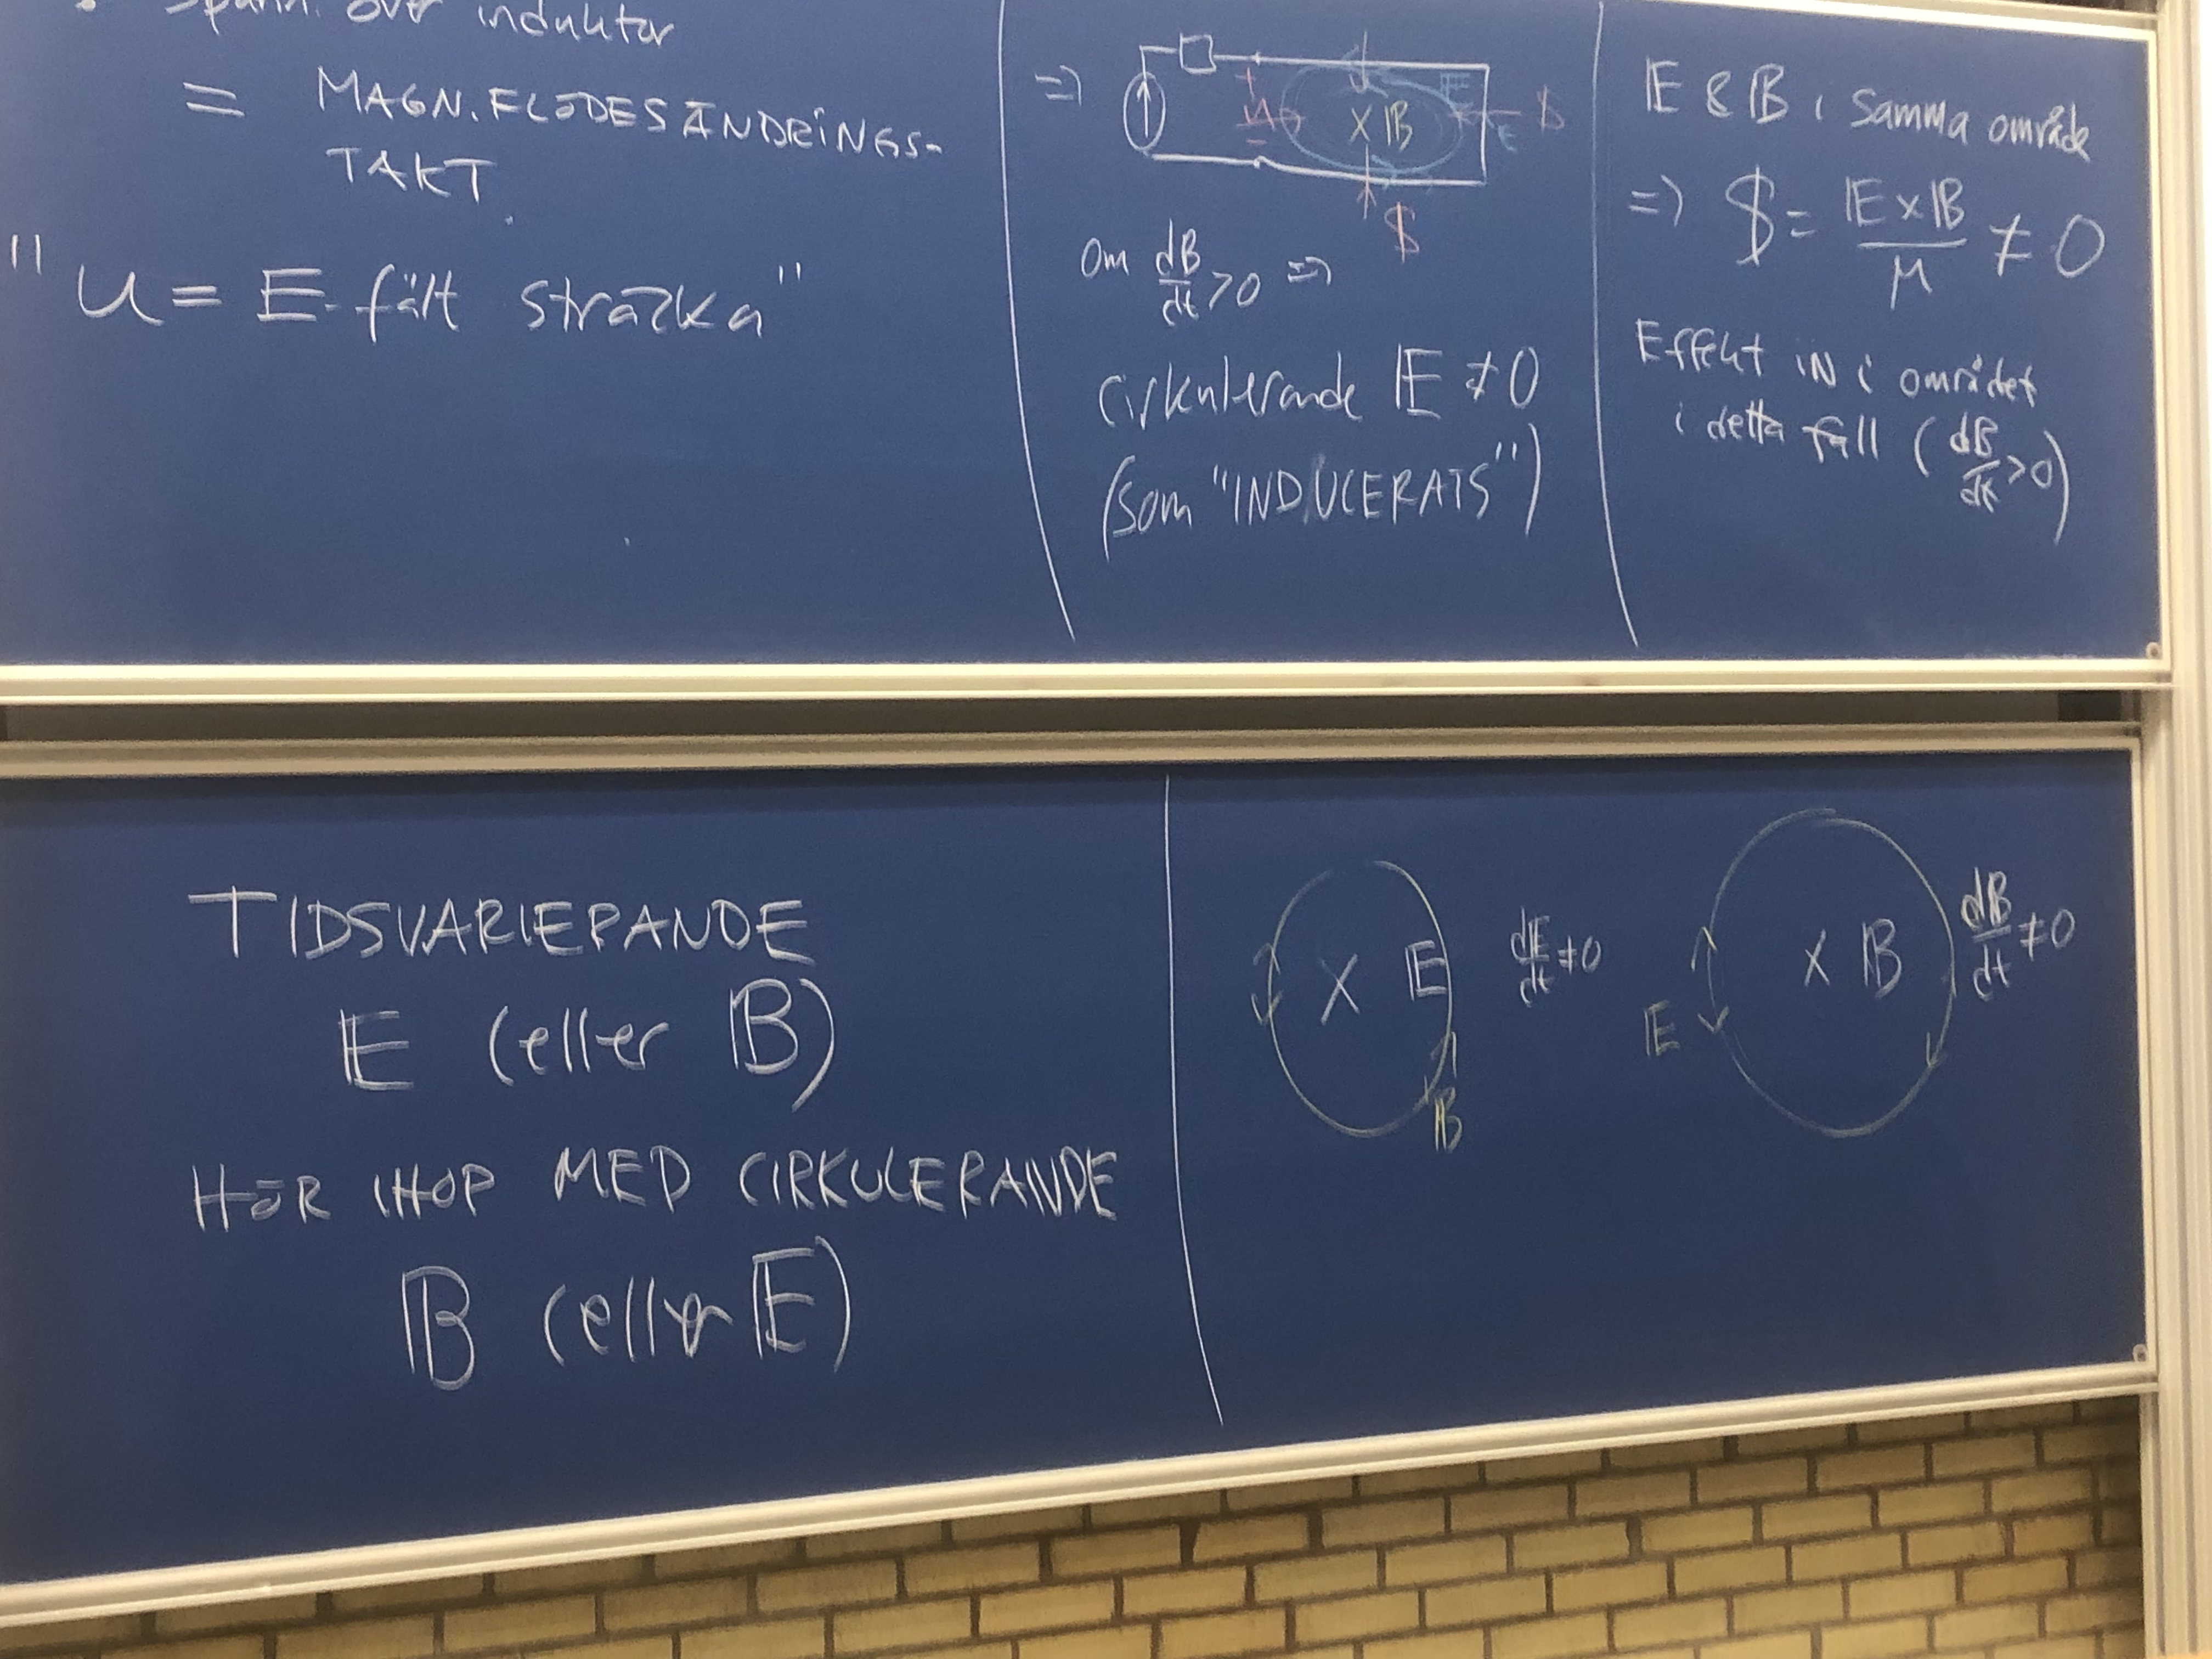 • Spänn. över induktor
= MAGN. FLÖDESÄNDRINGS-
TAKT.
"U = E-fält sträcka"
=>
+ U -
X B
E
E
S
S
Om dB/dt > 0 =>
cirkulerande E ≠ 0
(som "INDUCERATS")
E & B i samma område
=> S = E x B / μ ≠ 0
Effekt IN i området
i detta fall (dB/dt > 0)
TIDSVARIERANDE
E (eller B)
HÖR IHOP MED CIRKULERANDE
B (eller E)
X E
dE/dt ≠ 0
B
X B
dB/dt ≠ 0
E